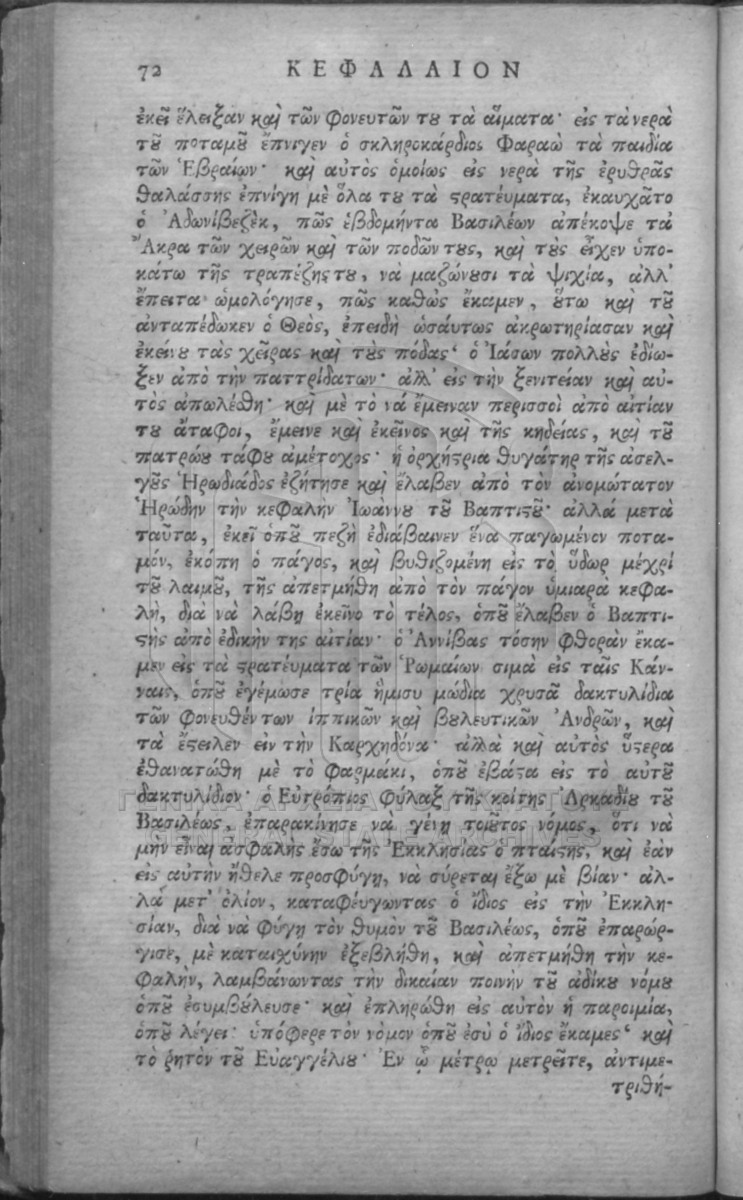 72 ΚΕΦΑΛΑΙΟΝ
ἐκεῖ ἔλειξαν καὶ τῶν φονευτῶν τȣ τὰ αἵματα· εἰς τὰ νερὰ
τȣ͂ ποταμȣ͂ ἔπνιγεν ὁ σκληροκάρδιος Φαραὼ τὰ παιδία
τῶν Ἑβραίων· καὶ αὐτὸς ὁμοίως εἰς νερὰ τῆς ἐρυθρᾶς
θαλάσσης ἐπνίγη μὲ ὅλα τȣ τὰ ϛρατέυματα, ἐκαυχᾶτο
ὁ Ἀδωνίβεζὲκ, πῶς ἑβδομήντα Βασιλέων ἀπέκοψε τὰ
Ἄκρα τῶν χειρῶν καὶ τῶν ποδῶν τȣς, καὶ τȣ̀ς εἶχεν ὑπο-
κάτω τῆς τραπέζης τȣ, νὰ μαζώνȣσι τὰ ψιχία, ἀλλ'
ἔπειτα ὡμολόγησε, πῶς καθὼς ἔκαμεν, ȣ̔́τω καὶ τȣ͂
ἀνταπέδωκεν ὁ Θεὸς, ἐπειδὴ ὡσάυτως ἀκρωτηρίασαν καὶ
ἐκείνȣ τὰς χεῖρας καὶ τȣ̀ς πόδας· ὁ Ἰάσων πολλȣ̀ς ἐδίω-
ξεν ἀπὸ τὴν παττρίδατων· ἀλλ' εἰς τὴν ξενιτείαν καὶ αὐ-
τὸς ἀπωλέσθη· καὶ μὲ τὸ νά ἔμειναν περισσοὶ ἀπὸ αἰτίαν
τȣ ἄταφοι, ἔμεινε καὶ ἐκεῖνος καὶ τῆς κηδείας, καὶ τȣ͂
πατρώȣ τάφȣ ἀμέτοχος· ἡ ὀρχήϛρια θυγάτηρ τῆς ἀσελ-
γȣ͂ς Ἡρωδιάδος ἐζήτησε καὶ ἔλαβεν ἀπὸ τὸν ἀνομώτατον
Ἡρώδην τὴν κεφαλὴν Ἰωάννȣ τȣ͂ Βαπτιϛȣ͂· ἀλλά μετὰ
ταῦτα, ἐκεῖ ὁπȣ͂ πεζὴ ἐδιάβαινεν ἕνα παγωμένον ποτα-
μόν, ἐκόπη ὁ πάγος, καὶ βυθιζομένη εἰς τὸ ὕδωρ μέχρί
τȣ͂ λαιμȣ͂, τῆς ἀπετμήθη ἀπὸ τὸν πάγον ὑμιαρὰ κεφα-
λὴ, διὰ νὰ λάβῃ ἐκεῖνο τὸ τέλος, ὁπȣ͂ ἔλαβεν ὁ Βαπτι-
ϛὴς ἀπὸ ἐδικὴν της αἰτίαν· ὁ Ἀννίβας τόσην φθορὰν ἔκα-
μεν εἰς τὰ ϛρατέυματα τῶν Ῥωμαίων σιμὰ εἰς ταῖς Κάν-
ναις, ὁπȣ͂ ἐγέμωσε τρία ἥμισυ μώδια χρυσᾶ δακτυλίδια
τῶν φονευθέντων ἱππικῶν καὶ βȣλευτικῶν Ἀνδρῶν, καὶ
τὰ ἔϛειλεν ειν τὴν Καρχηδόνα· ἀλλὰ καὶ αὐτὸς ὕϛερα
ἐθανατώθη μὲ τὸ φαρμάκι, ὁπȣ͂ ἐβάϛα εἰς τὸ αὐτȣ͂
δακτυλίδιον· ὁ Εὐτρόπιος φύλαξ τῆς κοίτης Ἀρκαδίȣ τȣ͂
Βασιλέως, ἐπαρακίνησε νὰ γένῃ τοιȣ͂τος νόμος, ὅτι νὰ
μὴν εἶναι ἀσφαλὴς ἔσω τῆς Ἐκκλησίας ὁ πταίϛης, καὶ ἐὰν
εἰς αὐτὴν ἤθελε προσφύγῃ, νὰ σύρεται ἔξω μὲ βίαν· ἀλ-
λὰ μετ' ὀλίον, καταφέυγωντας ὁ ἴδιος εἰς τὴν Ἐκκλη-
σίαν, διὰ νὰ φύγῃ τὸν θυμὸν τȣ͂ Βασιλέως, ὁπȣ͂ ἐπαρώρ-
γισε, μὲ καταιχύνην ἐξεβλήθη, καὶ ἀπετμήθη τὴν κε-
φαλὴν, λαμβάνωντας τὴν δικαίαν ποινὴν τȣ͂ ἀδίκȣ νόμȣ
ὁπȣ͂ ἐσυμβȣ́λευσε· καὶ ἐπληρώθη εἰς αὐτὸν ἡ παροιμία,
ὁπȣ͂ λέγει· ὑπόφερε τὸν νόμον ὁπȣ͂ ἐσὺ ὁ ἴδιος ἔκαμες· καὶ
τὸ ῥητὸν τȣ͂ Εὐαγγέλιȣ· Ἐν ᾧ μέτρῳ μετρεῖτε, ἀντιμε-
τριθή-